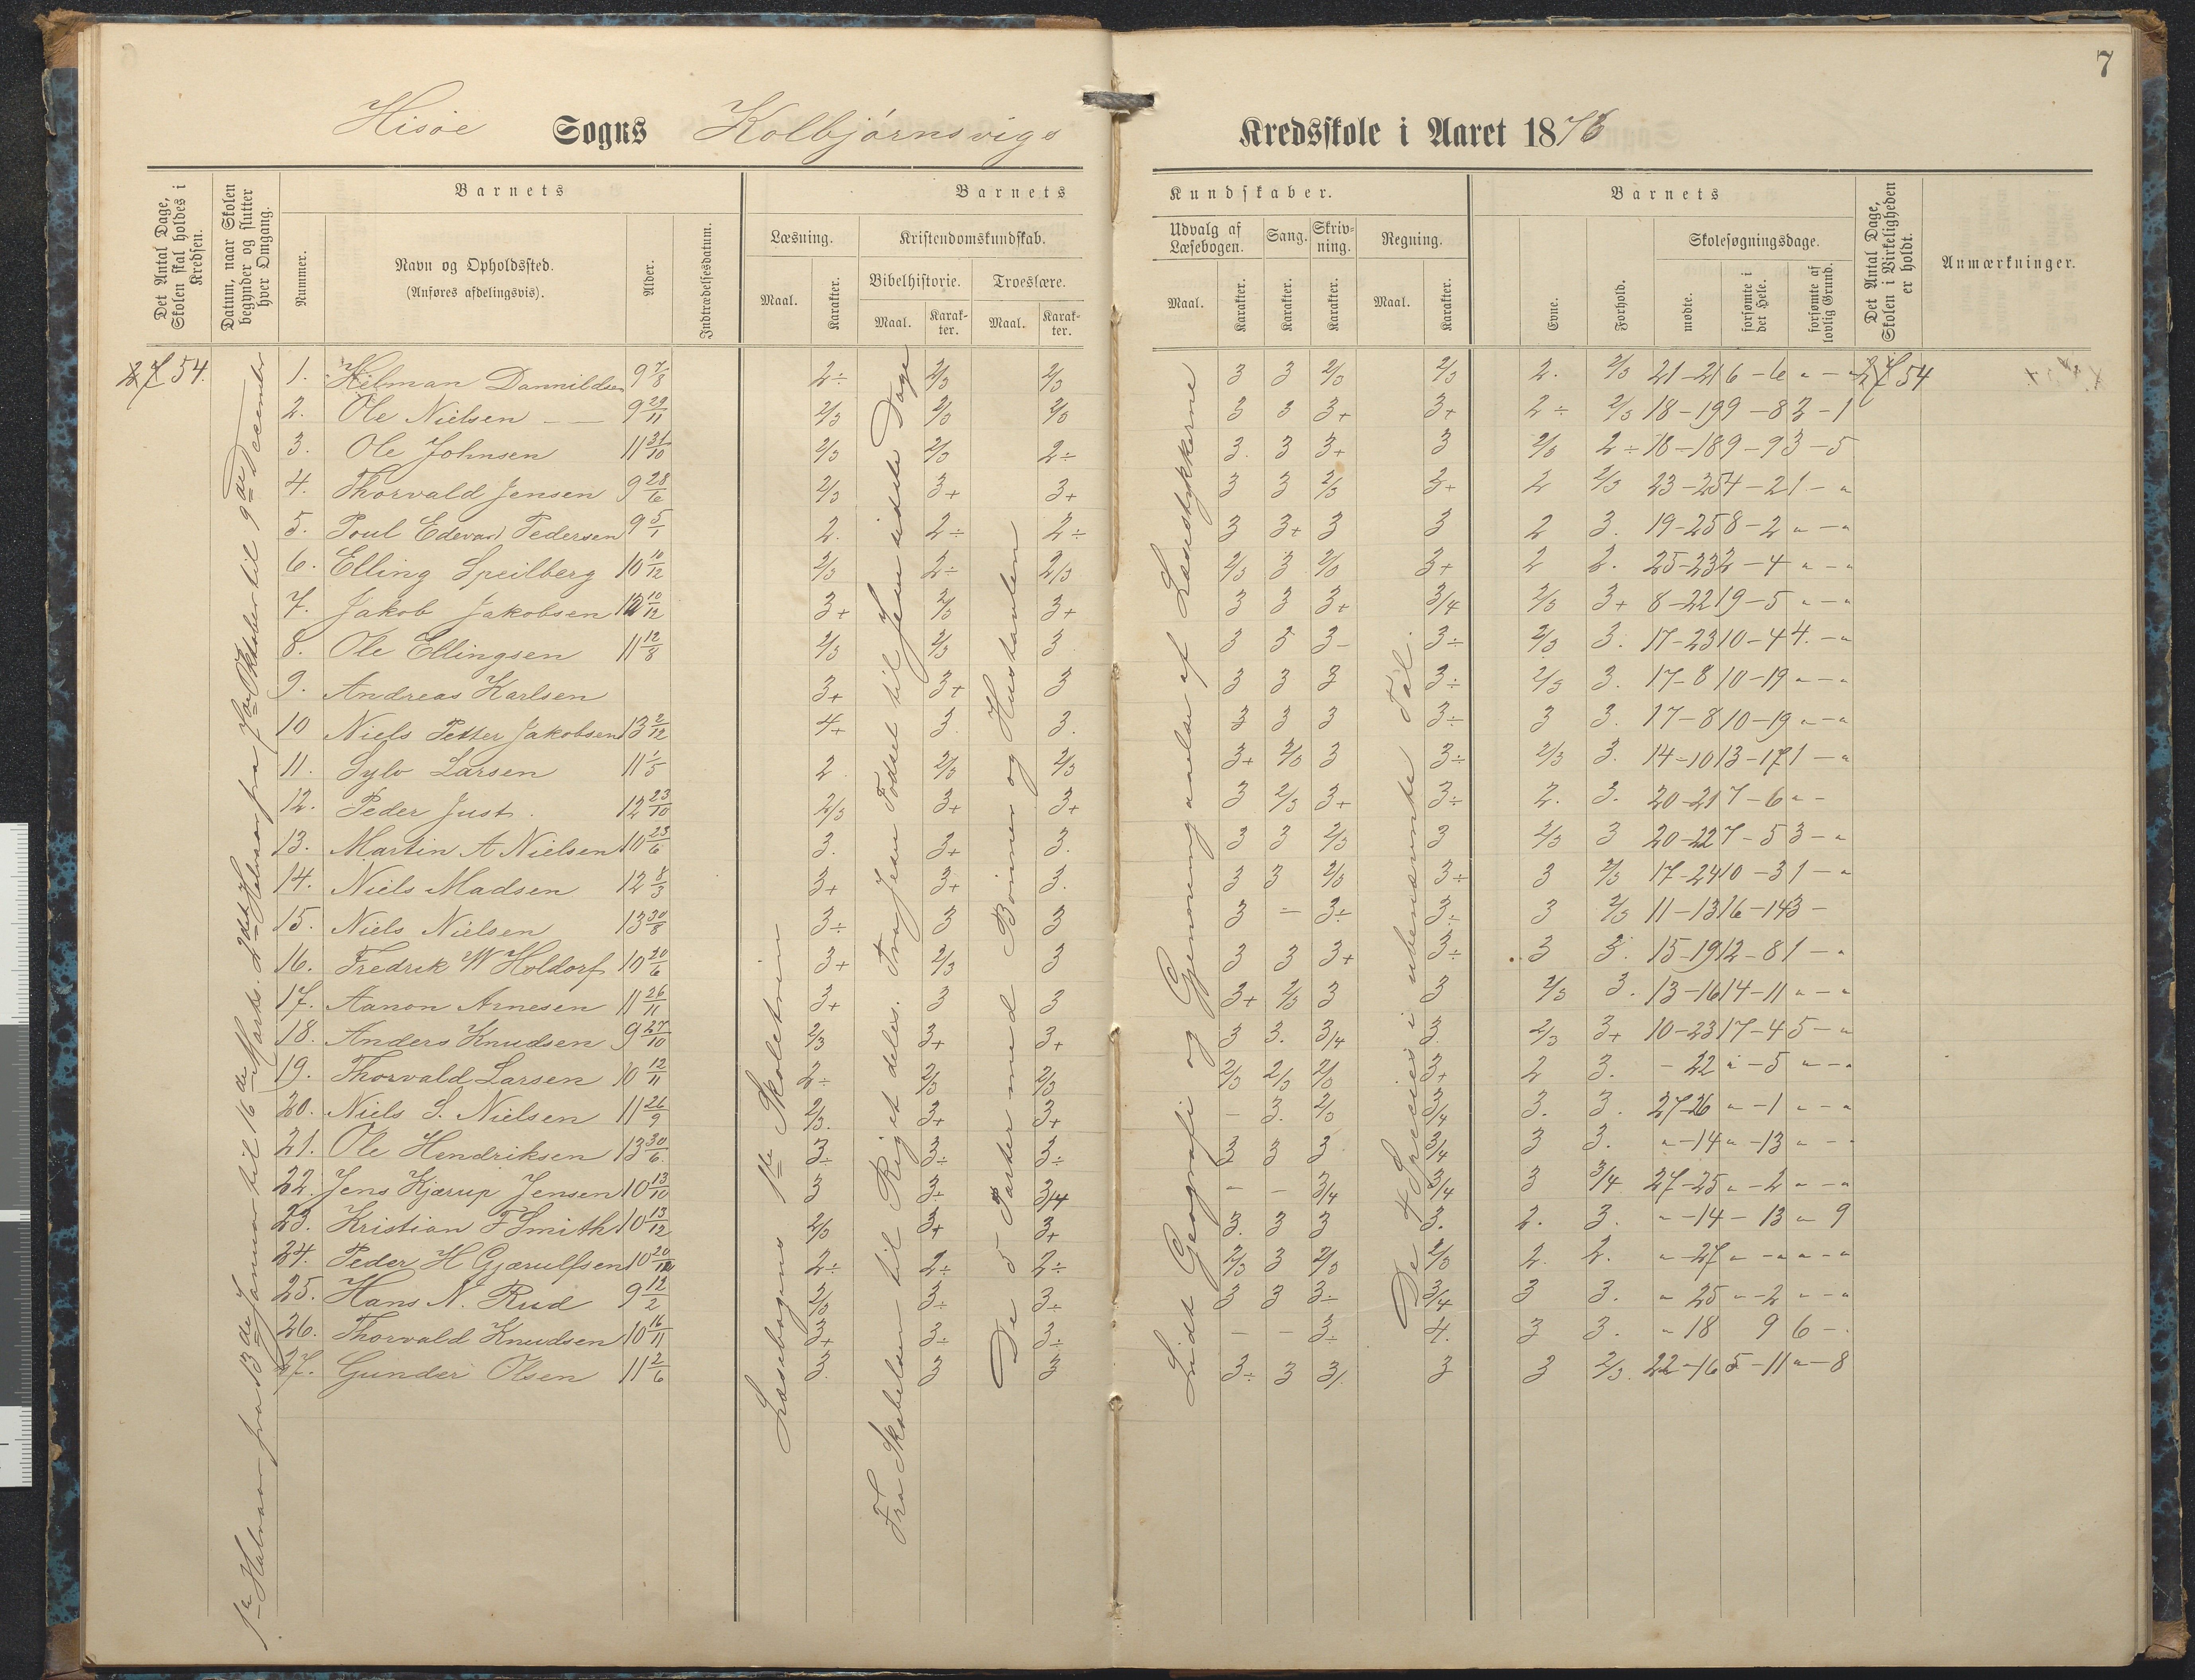 7
Hisøe Sogns Kolbjørnsvigs Kredsskole i Aaret 1876
Det Antal Dage, Skolen skal holdes i Kredsen.
Datum, naar Skolen begynder og slutter hver Omgang.
Barnets
Nummer.
Navn og Opholdssted. (Anføres afdelingsvis).
Alder.
Indtrædelsesdatum.
Barnets Kundskaber.
Læsning.
Maal. Karakter.
Kristendomskundskab.
Bibelhistorie. Troeslære.
Maal. Karak-ter. Maal. Karak-ter.
Udvalg af Læsebogen.
Maal. Karakter.
Sang. Karakter.
Skriv-ning. Karakter.
Regning.
Maal. Karakter.
Barnets
Evne.
Forhold.
Skolesøgningsdage.
mødte.
forsømte i det Hele.
forsømte af lovlig Grund.
Det Antal Dage, Skolen i Virkeligheden er holdt.
Anmærkninger.
1ste Halvaar fra 13de Januar til 16de Marts. 2det Halvaar fra Oktober til 9de December
Læsebogens 1ste Skoletrin
Fra Skabelsen til Riget deles. Fra Jesu Fødsel til Jesu sidste Dage
De 5 Parter med Bønner og Hustavlen
Lidt Geografi og Gjennemgaaelse af Læsestykkerne
De 4 Species i ubenævnte Tal.
54. 1. Hilman Dannildsen 9 7/8 2÷ 2/3 2/3 3 3 2/3 2/3 2. 2/3 21-21 6-6 „-„ 54
2. Ole Nielsen 9 29/11 2/3 2/3 2/3 3 3 3+ 3+ 2÷ 2/3 18-19 9-8 3-1
3. Ole Johnsen 11 31/10 2/3 2/3 2÷ 3. 3 3+ 3 2/3 2÷ 18-18 9-9 3-5
4. Thorvald Jensen 9 28/6 2/3 3+ 3+ 3 3 2/3 3+ 2 2/3 23-25 4-2 1-„
5. Poul Edevard Pedersen 9 5/1 2. 2÷ 2÷ 3 3+ 3 3 2 3. 19-25 8-2 „-„
6. Elling Speilberg 10 10/12 2/3 2÷ 2/3 2/3 3 2/3 3+ 2 2. 25-23 2-4 „-„
7. Jakob Jakobsen 12 10/12 3+ 2/3 3+ 3 3 3+ 3/4 2/3 3+ 8-22 19-5 „-„
8. Ole Ellingsen 11 12/8 2/3 2/3 3 3 3 3- 3÷ 2/3 3. 17-23 10-4 4.-„
9. Andreas Karlsen 3+ 3+ 3 3 3 3 3÷ 2/3 3. 17-8 10-19 „-„
10 Niels Petter Jakobsen 13 2/12 4+ 3. 3. 3 3 3 3÷ 3 3. 17-8 10-19 „-„
11. Sylv Larsen 11 1/5 2 2/3 2/3 3+ 2/3 3 3÷ 2/3 3. 14-10 13-17 1-„
12. Peder Just. 12 23/10 2/3 3+ 3+ 3 2/3 3+ 3÷ 2. 3. 20-21 7-6 „-
13. Martin A Nielsen 10 23/6 3. 3+ 3. 3 3 2/3 3 2/3 3 20-22 7-5 3-„
14. Niels Madsen 12 8/3 3+ 3+ 3. 3 3 2/3 3÷ 3 2/3 17-24 10-3 1-„
15. Niels Nielsen 13 30/8 3÷ 3 3 3 - 3÷ 3÷ 3 2/3 11-13 16-14 3-
16. Fredrek W Holdorf 10 20/6 3+ 2/3 3 3 3 3+ 3÷ 3 3. 15-19 12-8 1-„
17. Aanon Arnesen 11 26/11 3+ 3 3 3+ 2/3 3 3 2/3 3. 13-16 14-11 „-„
18. Anders Knudsen 9 27/10 2/3 3+ 3+ 3 3. 3/4 3. 2/3 3+ 10-23 17-4 5-„
19. Thorvald Larsen 10 12/11 2÷ 2/3 2/3 2/3 2/3 2/3 3+ 2 3. -22 „-5 „-„
20. Niels S. Nielsen 11 26/9 2/3. 3+ 3+ - 3. 2/3 3/4 3. 3. 27-26 „-1 „-„
21. Ole Hendriksen 13 30/6 3÷ 3÷ 3÷ 3 3 3 3/4 3 3. „-14 „-13 „-
22. Jens Kjærup Jensen 10 13/10 3 3÷ 3/4 - - 3/4 3/4 3 3/4 27-25 „-2 „-„
23. Kristian F Smith 10 13/12 2/3 3+ 3+ 3. 3 3 3. 2. 3. „-14 -13 „ 9
24. Peder H Gjærulfsen 10 20/12 2÷ 2÷ 2÷ 2/3 3 2/3 2/3 2. 2. „-27 „-„ „-„
25. Hans N. Rud 9 12/2 2/3 3÷ 3÷ 3 3 3÷ 3/4 3 3. „ 25 „-2 „-„
26. Thorvald Knudsen 10 16/11 3+ 3÷ 3÷ - - 3÷ 4. 3 3. „18 9 6-
27. Gunder Olsen 11 2/6 3. 3 3 3÷ 3 3/. 3 3 2/3. 22-16 5-11 „-8